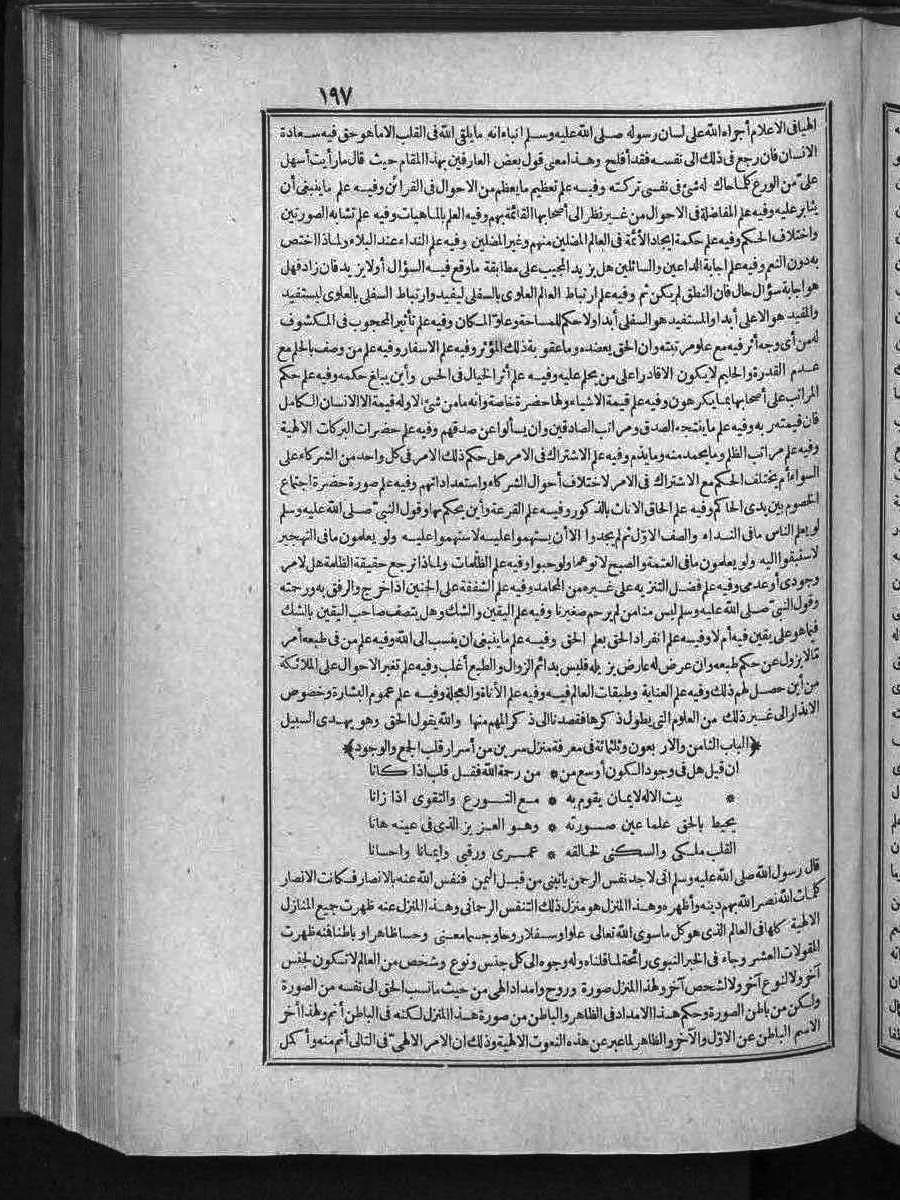 ١٩٧
الهيا فى الاعلام أجراه الله على لسان رسوله صلى الله عليه وسلم انباءانه ما يلقى الله فى القلب الاما هو حق فيه سعادة
الانسان فان رجع فى ذلك الى نفسه فقد أفلح وهذا معنى قول بعض العارفين بهذا المقام حيث قال ما رأيت أسهل
علىّ من الورع كلما حاك له شئ فى نفسى تركته وفيه علم تعظيم ما يعظم من الاحوال فى القرائن وفيه علم ما ينبغى أن
يثابر عليه وفيه علم المفاضلة فى الاحوال من غير نظر الى أصحابها القائمة بهم وفيه العلم بالماهيات وفيه علم تشابه الصورتين
واختلاف الحكم وفيه علم حكمة ايجاد الأئمة فى العالم المضلين منهم وغير المضلين وفيه علم النداء عند البلاء ولماذا اختص
به دون النعم وفيه علم اجابة الداعين والسائلين هل يزيد المجيب على مطابقة ما وقع فيه السؤال أولا يزيد فان زاد فهل
هو اجابة سؤال حال فان النطق لم يكن ثم وفيه علم ارتباط العالم العلوى بالسفلى ليفيد وارتباط السفلى بالعلوى ليستفيد
والمفيد هو الاعلى أبدا والمستفيد هو السفلى أبدا ولا حكم للمساحة وعلوّ المكان وفيه علم تأثير المحجوب فى المكشوف
له من أى وجه أثر فيه مع علو مرتبته وان الحق يعضده وما عقوبة ذلك المؤثر وفيه علم الاسفار وفيه علم من وصف بالحلم مع
عدم القدرة والحليم لا يكون الا قادرا على من يحلم عليه وفيه علم أثر الخيال فى الحس وأين يبلغ حكمه وفيه علم حكم
المراتب على أصحابها بما يكرهون وفيه علم قيمة الاشياء ولها حضرة خاصة وانه ما من شئ الا وله قيمة الا الانسان الكامل
فان قيمته ربه وفيه علم ما ينتجه الصدق ومراتب الصادقين وان يسألوا عن صدقهم وفيه علم حضرات البركات الالهية
وفيه علم مراتب الظلم وما يحمد منه وما يذم وفيه علم الاشتراك فى الامر هل حكم ذلك الامر فى كل واحد من الشركاء على
السواء أم يختلف الحكم مع الاشتراك فى الامر لاختلاف أحوال الشركاء واستعداداتهم وفيه علم صورة حضرة اجتماع
الخصوم بين يدى الحاكم وفيه علم الحاق الاناث بالذكور وفيه علم القرعة وأين يحكم بها وقول النبىّ صلى الله عليه وسلم
لو يعلم الناس ما فى النداء والصف الاوّل ثم لم يجدوا الا أن يستهموا عليه لاستهموا عليه ولو يعلمون ما فى التهجير
لاستبقوا اليه ولو يعلمون ما فى العتمة والصبح لاتوهما ولو حبوا وفيه علم الظلمات ولماذا ترجع حقيقة الظلمة هل لامر
وجودى أو عدمى وفيه علم فضل التنزيه على غيره من المحامد وفيه علم الشفقة على الجنين اذا خرج والرفق به ورحمته
وقول النبىّ صلى الله عليه وسلم ليس منا من لم يرحم صغيرنا وفيه علم اليقين والشك وهل يتصف صاحب اليقين بالشك
فيما هو على يقين فيه أم لا وفيه علم انفراد الحق بعلم الحق وفيه علم ما ينبغى ان ينسب الى الله وفيه علم من فى طبعه أمر
مّا لا يزول عن حكم طبعه وان عرض له عارض يزيله فليس بدائم الزوال والطبع أغلب وفيه علم تغير الاحوال على الملائكة
من أين حصل لهم ذلك وفيه علم العناية وطبقات العالم فيه وفيه علم الأناة والعجلة وفيه علم عموم البشارة وخصوص
الانذار الى غير ذلك من العلوم التى يطول ذكرها فقصدنا الى ذكر المهم منها والله يقول الحق وهو يهدى السبيل
﴿الباب الثامن والاربعون وثلثمائة فى معرفة منزل سرين من أسرار قلب الجمع والوجود﴾
ان قيل هل فى وجود الكون أوسع من * من رحمة الله فقل قلب اذا كانا
* بيت الاله لايمان يقوم به * مع التورع والتقوى اذا زانا
يحيط بالحق علما عين صورته * وهو العزيز الذى فى عينه هانا
القلب ملكى والسكنى لخالقه * عمرى ورقبى وايمانا واحسانا
قال رسول الله صلى الله عليه وسلم انى لاجد نفس الرحمن يأتينى من قبل اليمن فنفس الله عنه بالانصار فكانت الانصار
كلمات الله نصر الله بهم دينه وأظهره وهذا المنزل هو منزل ذلك التنفس الرحمانى وهذا المنزل عنه ظهرت جميع المنازل
الالهية كلها فى العالم الذى هو كل ما سوى الله تعالى علوا وسفلا روحا وجسما معنى وحسا ظاهرا وباطنا فنه ظهرت
المقولات العشر وجاء فى الخبر النبوى رائحة لما قلناه وله وجوه الى كل جنس ونوع وشخص من العالم لا تكون لجنس
آخر ولا لنوع آخر ولا لشخص آخر ولهذا المنزل صورة وروح وامداد الهى من حيث ما نسب الحق الى نفسه من الصورة
ولكن من باطن الصورة وحكم هذا الامداد فى الظاهر والباطن من صورة هذا المنزل لكنه فى الباطن أتم ولهذا أخر
الاسم الباطن عن الاوّل والآخر والظاهر لما عبر عن هذه النعوت الالهية وذلك ان الامر الالهىّ فى التالى أتم منه وأكمل